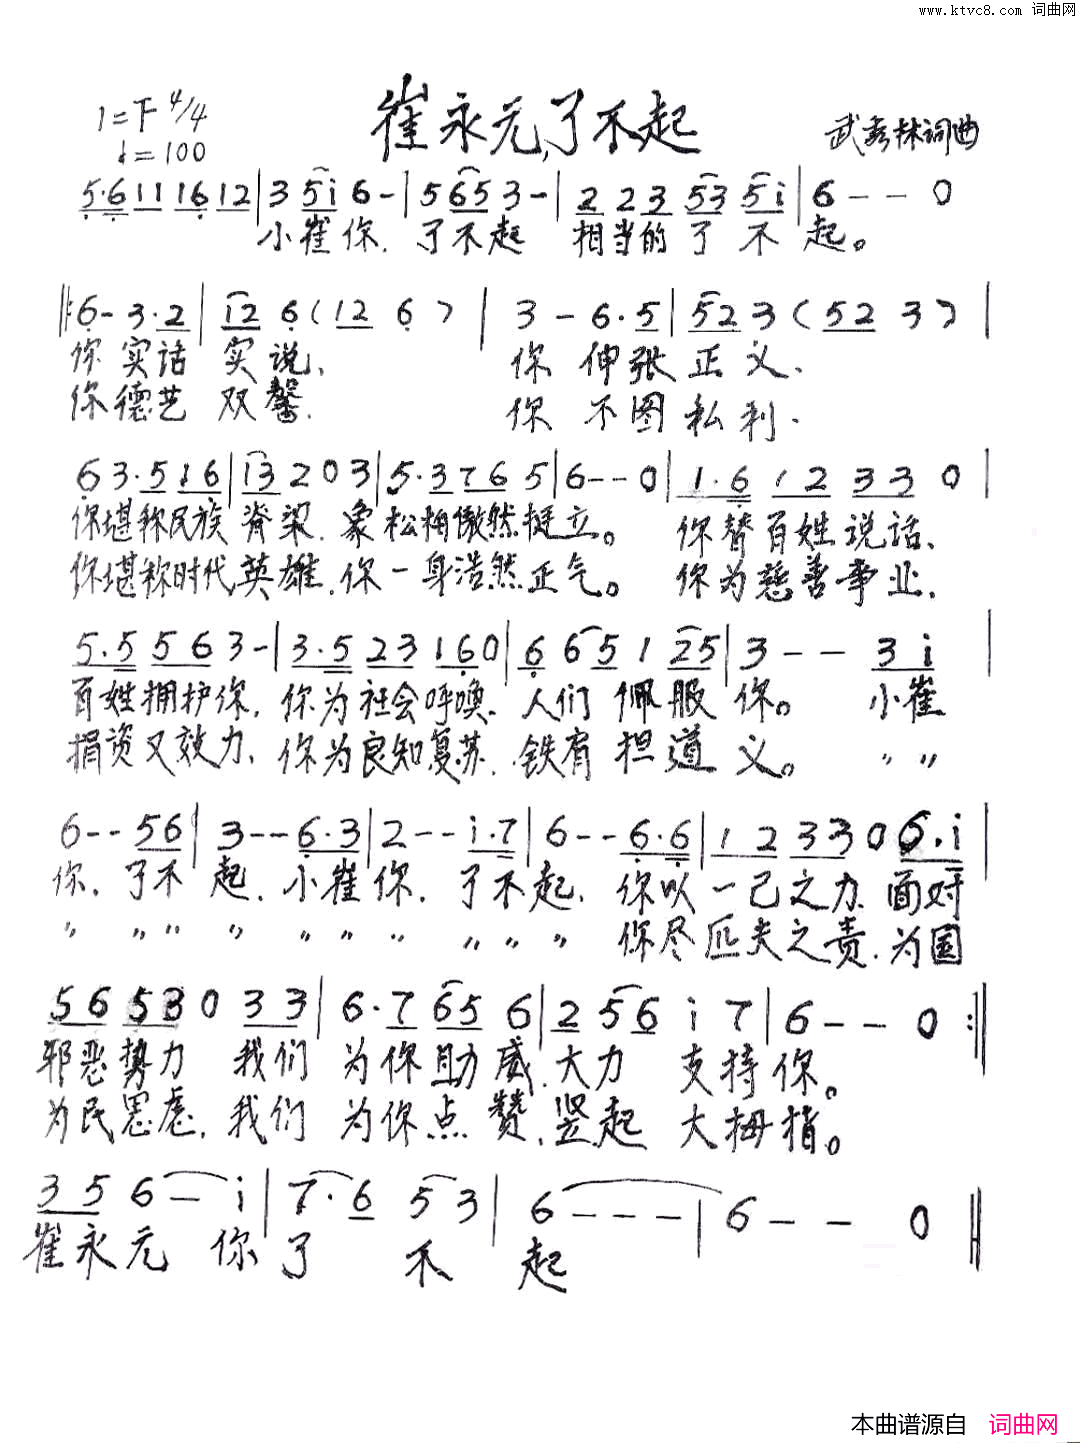 www.ktvc8.com 词曲网
崔永元,了不起
1=F 4/4
♩=100
武秀林词曲
5·6 11 16 12 | 3 5i 6 - | 5 65 3 - | 2 2 3 53 5i | 6 - - 0
小崔你,了不起 相当的了不起。
‖: 6 - 3·2 | 12 6 ( 12 6 ) | 3 - 6·5 | 52 3 ( 52 3 ) |
你实话实说、 你伸张正义、
你德艺双馨. 你不图私利.
6 3·5 16 | 13 2 0 3 | 5·3 76 5 | 6 - - 0 | 1·6 12 33 0 |
你堪称民族脊梁.象松柏傲然挺立。 你替百姓说话、
你堪称时代英雄.你一身浩然正气。 你为慈善事业,
5·5 56 3 - | 3·5 23 16 0 | 6 65 1 25 | 3 - - 3i |
百姓拥护你,你为社会呼唤.人们佩服你。 小崔
捐资又效力、你为良知复苏.铁肩担道义。 〃 〃
6 - - 56 | 3 - - 6·3 | 2 - - i·7 | 6 - - 6·6 | 12 33 0 6·i |
你,了不起.小崔你,了不起,你以一己之力.面对
〃 〃 〃 〃 〃 〃 〃 〃 〃 〃 你尽匹夫之责.为国
56 53 0 33 | 6·7 65 6 | 2 56 i 7 | 6 - - 0 :‖
邪恶势力 我们为你助威.大力支持你。
为民思虑,我们为你点赞.竖起大拇指。
35 6 - i | 7·6 5 3 | 6 - - - | 6 - - 0 ‖
崔永元 你了不起
本曲谱源自 词曲网